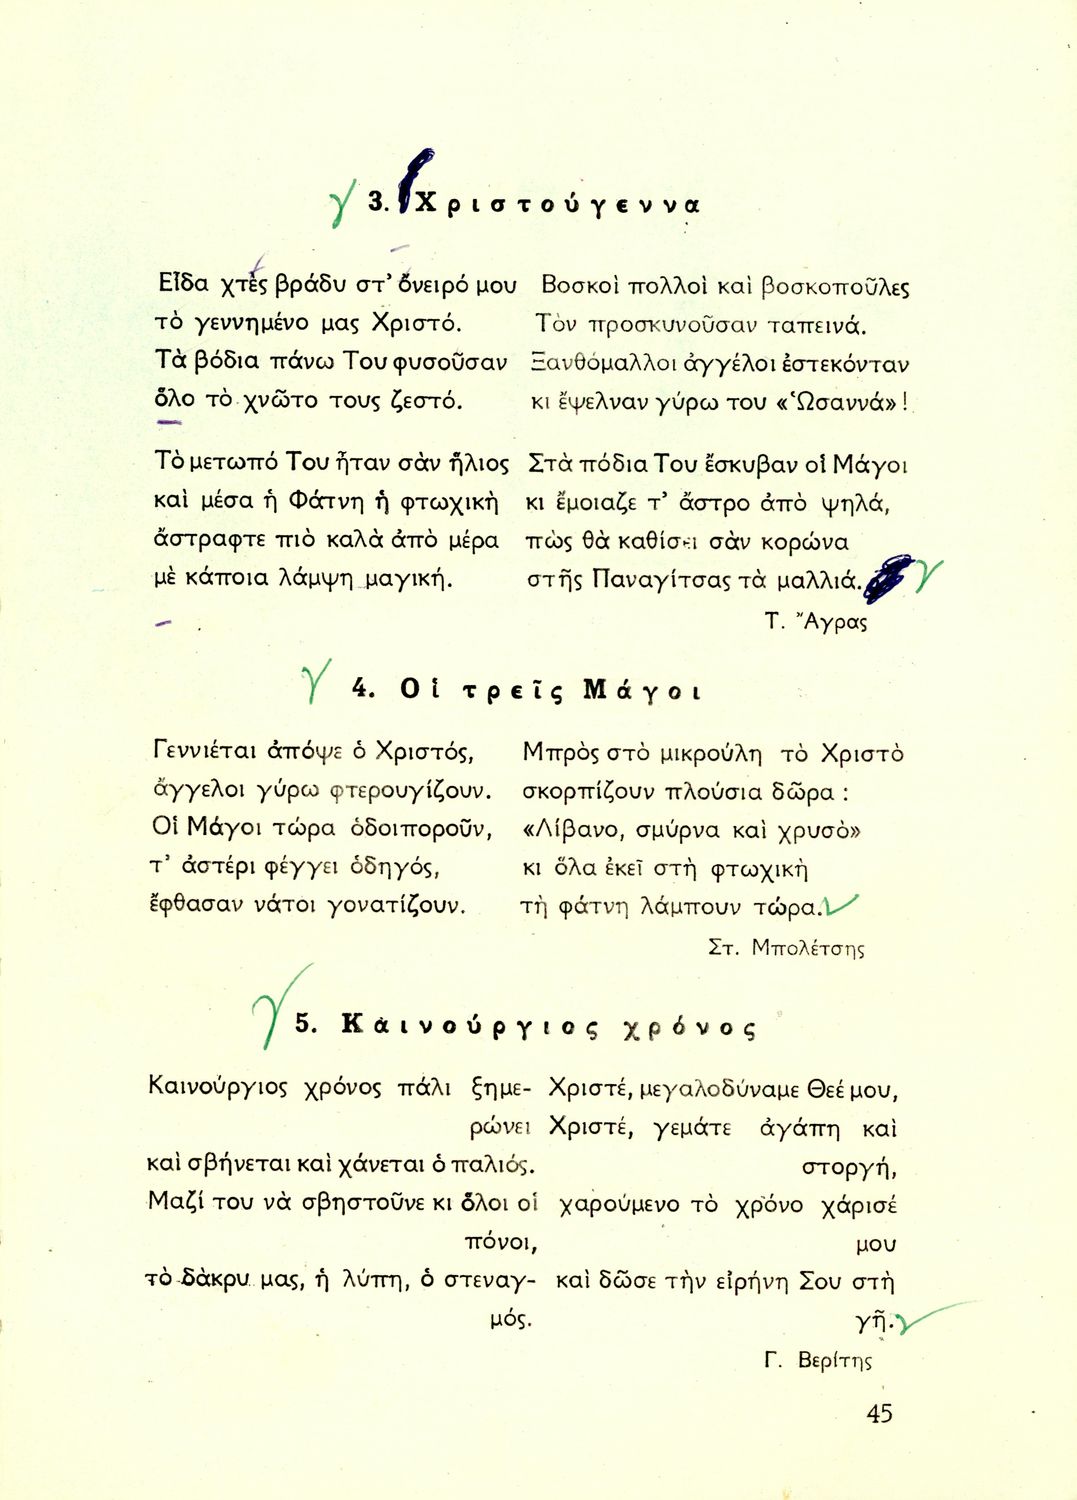 3. Χριστούγεννα
Εἶδα χτὲς βράδυ στ’ ὄνειρό μου
τὸ γεννημένο μας Χριστό.
Τὰ βόδια πάνω Του φυσοῦσαν
ὅλο τὸ χνῶτο τους ζεστό.
Τὸ μετωπό Του ἦταν σὰν ἥλιος
καὶ μέσα ἡ Φάτνη ἡ φτωχικὴ
ἄστραφτε πιὸ καλὰ ἀπὸ μέρα
μὲ κάποια λάμψη μαγική.
Βοσκοὶ πολλοὶ καὶ βοσκοποῦλες
Τὸν προσκυνοῦσαν ταπεινά.
Ξανθόμαλλοι ἀγγέλοι ἐστεκόνταν
κι ἔψελναν γύρω του «Ὡσαννά» !
Στὰ πόδια Του ἔσκυβαν οἱ Μάγοι
κι ἔμοιαζε τ’ ἄστρο ἀπὸ ψηλά,
πὼς θὰ καθίσει σὰν κορώνα
στῆς Παναγίτσας τὰ μαλλιά.
Τ. Ἄγρας
4. Οἱ τρεῖς Μάγοι
Γεννιέται ἀπόψε ὁ Χριστός,
ἄγγελοι γύρω φτερουγίζουν.
Οἱ Μάγοι τώρα ὁδοιποροῦν,
τ’ ἀστέρι φέγγει ὁδηγός,
ἔφθασαν νάτοι γονατίζουν.
Μπρὸς στὸ μικρούλη τὸ Χριστὸ
σκορπίζουν πλούσια δῶρα :
«Λίβανο, σμύρνα καὶ χρυσὸ»
κι ὅλα ἐκεῖ στὴ φτωχικὴ
τὴ φάτνη λάμπουν τώρα.
Στ. Μπολέτσης
5. Καινούργιος χρόνος
Καινούργιος χρόνος πάλι ξημε-
ρώνει
καὶ σβήνεται καὶ χάνεται ὁ παλιός.
Μαζί του νὰ σβηστοῦνε κι ὅλοι οἱ
πόνοι,
τὸ δάκρυ μας, ἡ λύπη, ὁ στεναγ-
μός.
Χριστέ, μεγαλοδύναμε Θεέ μου,
Χριστέ, γεμάτε ἀγάπη καὶ
στοργή,
χαρούμενο τὸ χρόνο χάρισέ
μου
καὶ δῶσε τὴν εἰρήνη Σου στὴ
γῆ.
Γ. Βερίτης
45